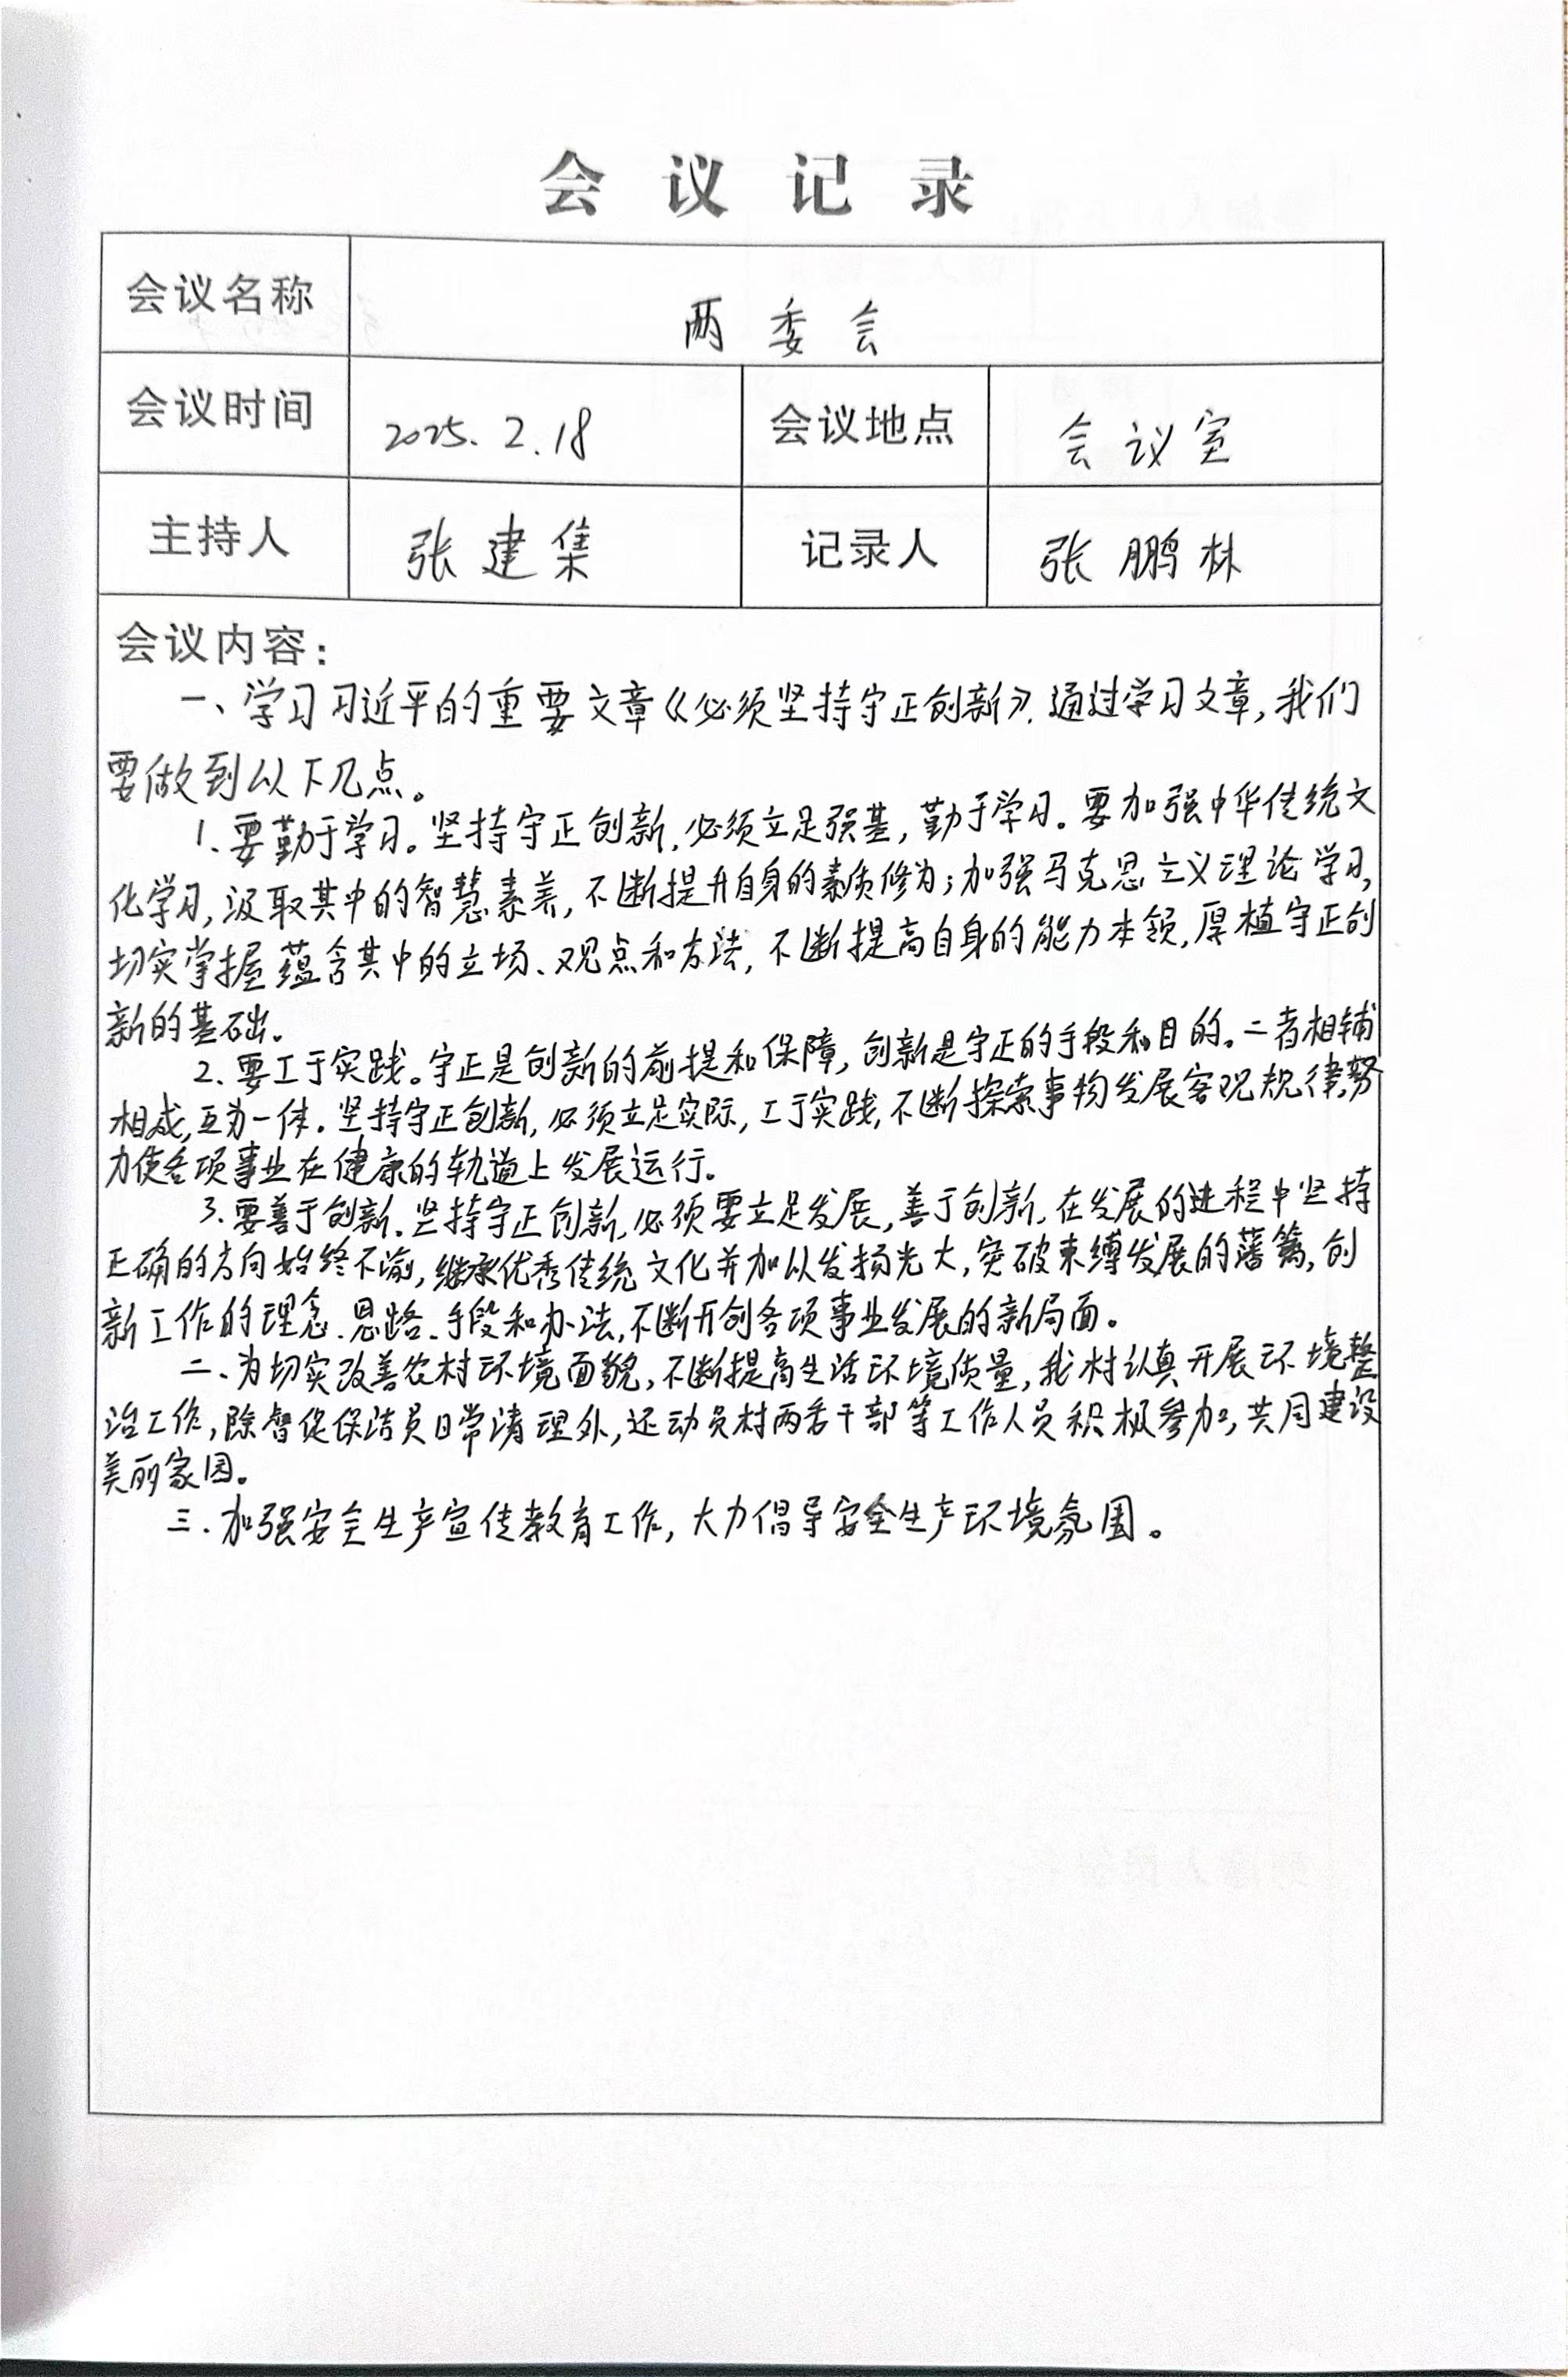 会议记录
会议名称 两委会
会议时间 2025.2.18 会议地点 会议室
主持人 张建集 记录人 张鹏林
会议内容：
一、学习习近平的重要文章《必须坚持守正创新》.通过学习文章,我们
要做到以下几点。
1.要勤于学习。坚持守正创新,必须立足强基,勤于学习。要加强中华传统文
化学习,汲取其中的智慧素养,不断提升自身的素质修为;加强马克思主义理论学习,
切实掌握蕴含其中的立场、观点和方法,不断提高自身的能力本领,厚植守正创
新的基础。
2.要工于实践。守正是创新的前提和保障,创新是守正的手段和目的。二者相辅
相成,互为一体.坚持守正创新,必须立足实际,工于实践,不断探索事物发展客观规律,努
力使各项事业在健康的轨道上发展运行。
3.要善于创新.坚持守正创新,必须要立足发展,善于创新,在发展的进程中坚持
正确的方向始终不渝,继承优秀传统文化并加以发扬光大,突破束缚发展的藩篱,创
新工作的理念、思路、手段和办法,不断开创各项事业发展的新局面。
二、为切实改善农村环境面貌,不断提高生活环境质量,我村认真开展环境整
治工作,除督促保洁员日常清理外,还动员村两委干部等工作人员积极参加,共同建设
美丽家园。
三.加强安全生产宣传教育工作,大力倡导安全生产环境氛围。